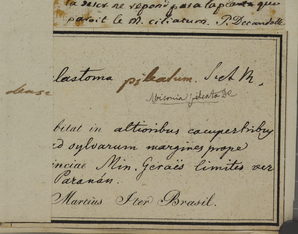 la descr. ne répond pas à la plante que
paroit le M. ciliatum. P. Decandolle
lastoma pileatum. S. et M.
Miconia pileata DC
bitat in altioribus campestribus
ad sylvarum margines prope
inciae Min. Geraës limites ver
Paranán.
Martius Iter Brasil.